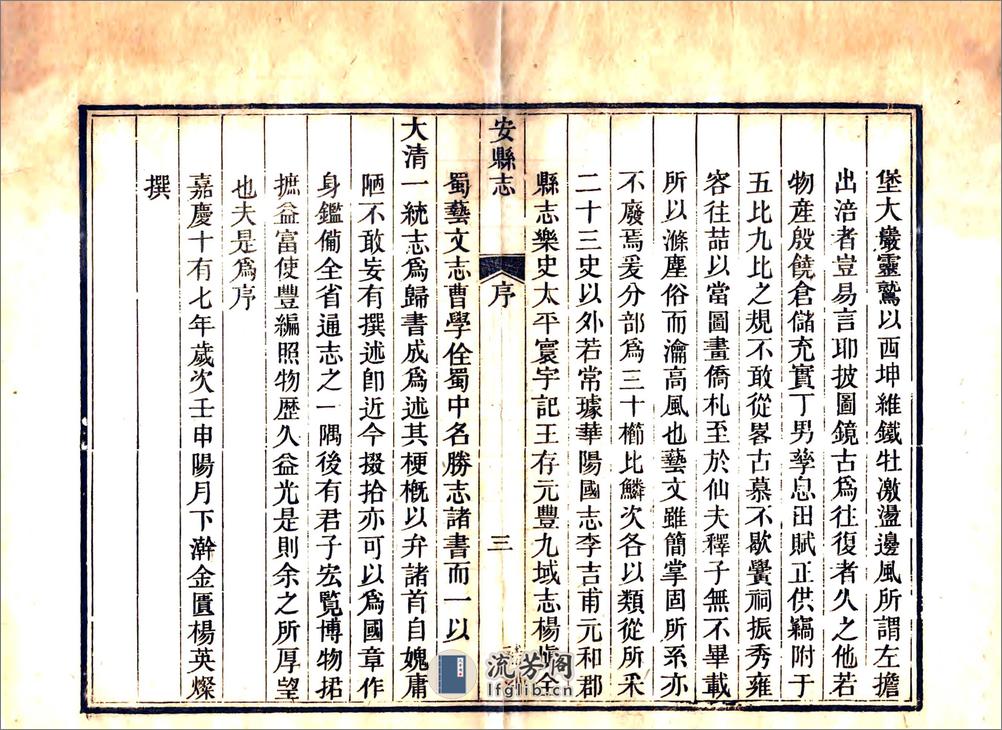 堡大巖靈鷲以西坤維鐵牡激盪邊風所謂左擔
出涪者豈易言耶披圖鏡古爲往復者久之他若
物產殷饒倉儲充實丁男孳息田賦正供竊附于
五比九比之規不敢從畧古慕不歇黌祠振秀雍
容往喆以當圖畫僑札至於仙夫釋子無不畢載
所以滌塵俗而瀹高風也藝文雖簡掌固所系亦
不廢焉爰分部爲三十櫛比鱗次各以類從所采
二十三史以外若常璩華陽國志李吉甫元和郡
縣志樂史太平寰宇記王存元豐九域志楊慎全
安縣志
序
三
蜀藝文志曹學佺蜀中名勝志諸書而一以
大清一統志爲歸書成爲述其梗概以弁諸首自媿庸
陋不敢妄有撰述卽近今掇拾亦可以爲國章作
身鑑備全省通志之一隅後有君子宏覽博物拓
摭益富使豐編照物歷久益光是則余之所厚望
也夫是爲序
嘉慶十有七年歲次壬申陽月下澣金匱楊英燦
撰
流芳閣
lfglib.cn